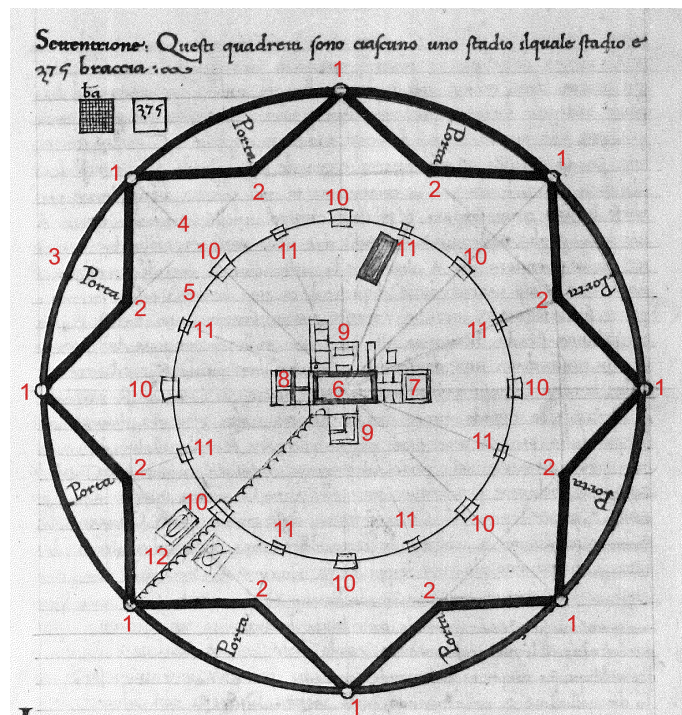 Settentrione: Questi quadreti sono ciascuno uno stadio ilquale stadio e
375 braccia
1
ba
375
Porta
Porta
1
1
2
2
10
4
11
11
10
10
3
Porta
5
Porta
2
2
11
9
11
1
10
8
6
7
10
1
9
11
11
2
2
Porta
Porta
10
10
11
11
12
10
2
2
1
1
Porta
Porta
1